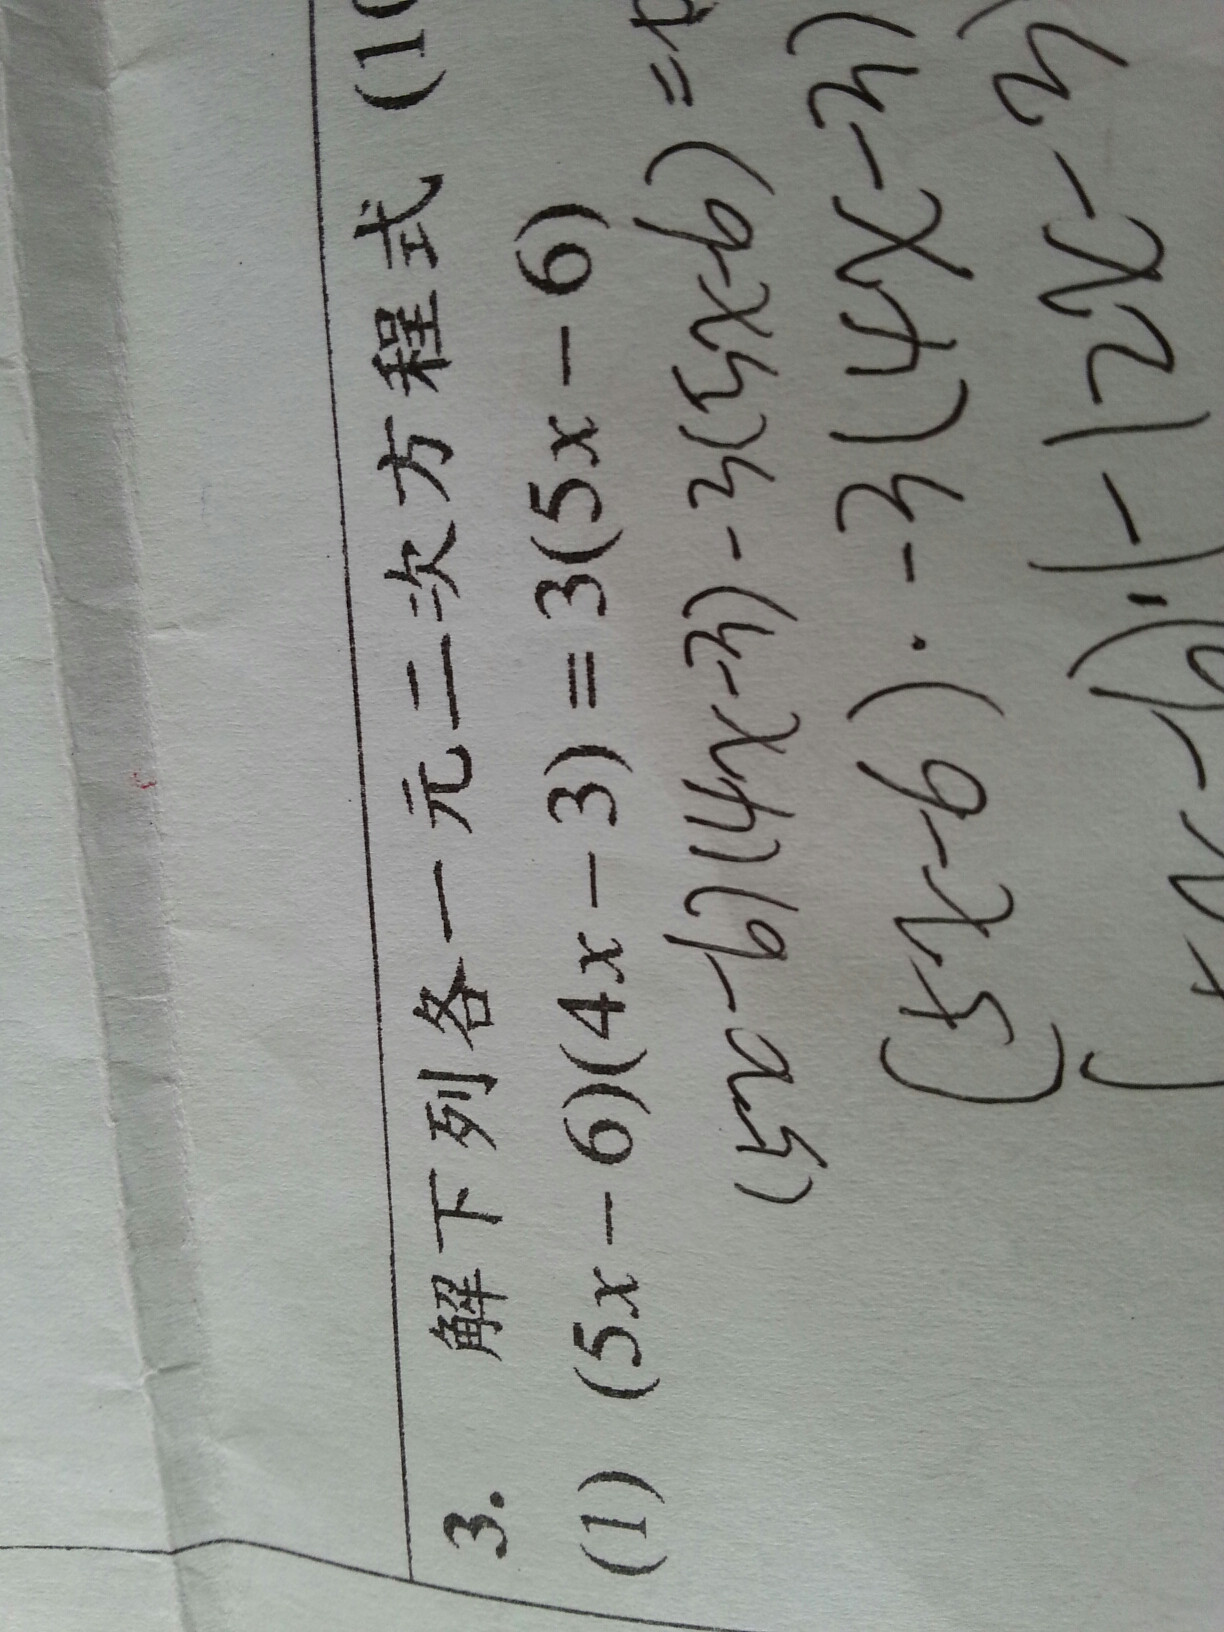 3. 解下列各一元二次方程式 (1
(1) (5x-6)(4x-3) = 3(5x-6)
(5x-6)(4x-3)-3(5x-6)=
(5x-6).-3(4x-3)